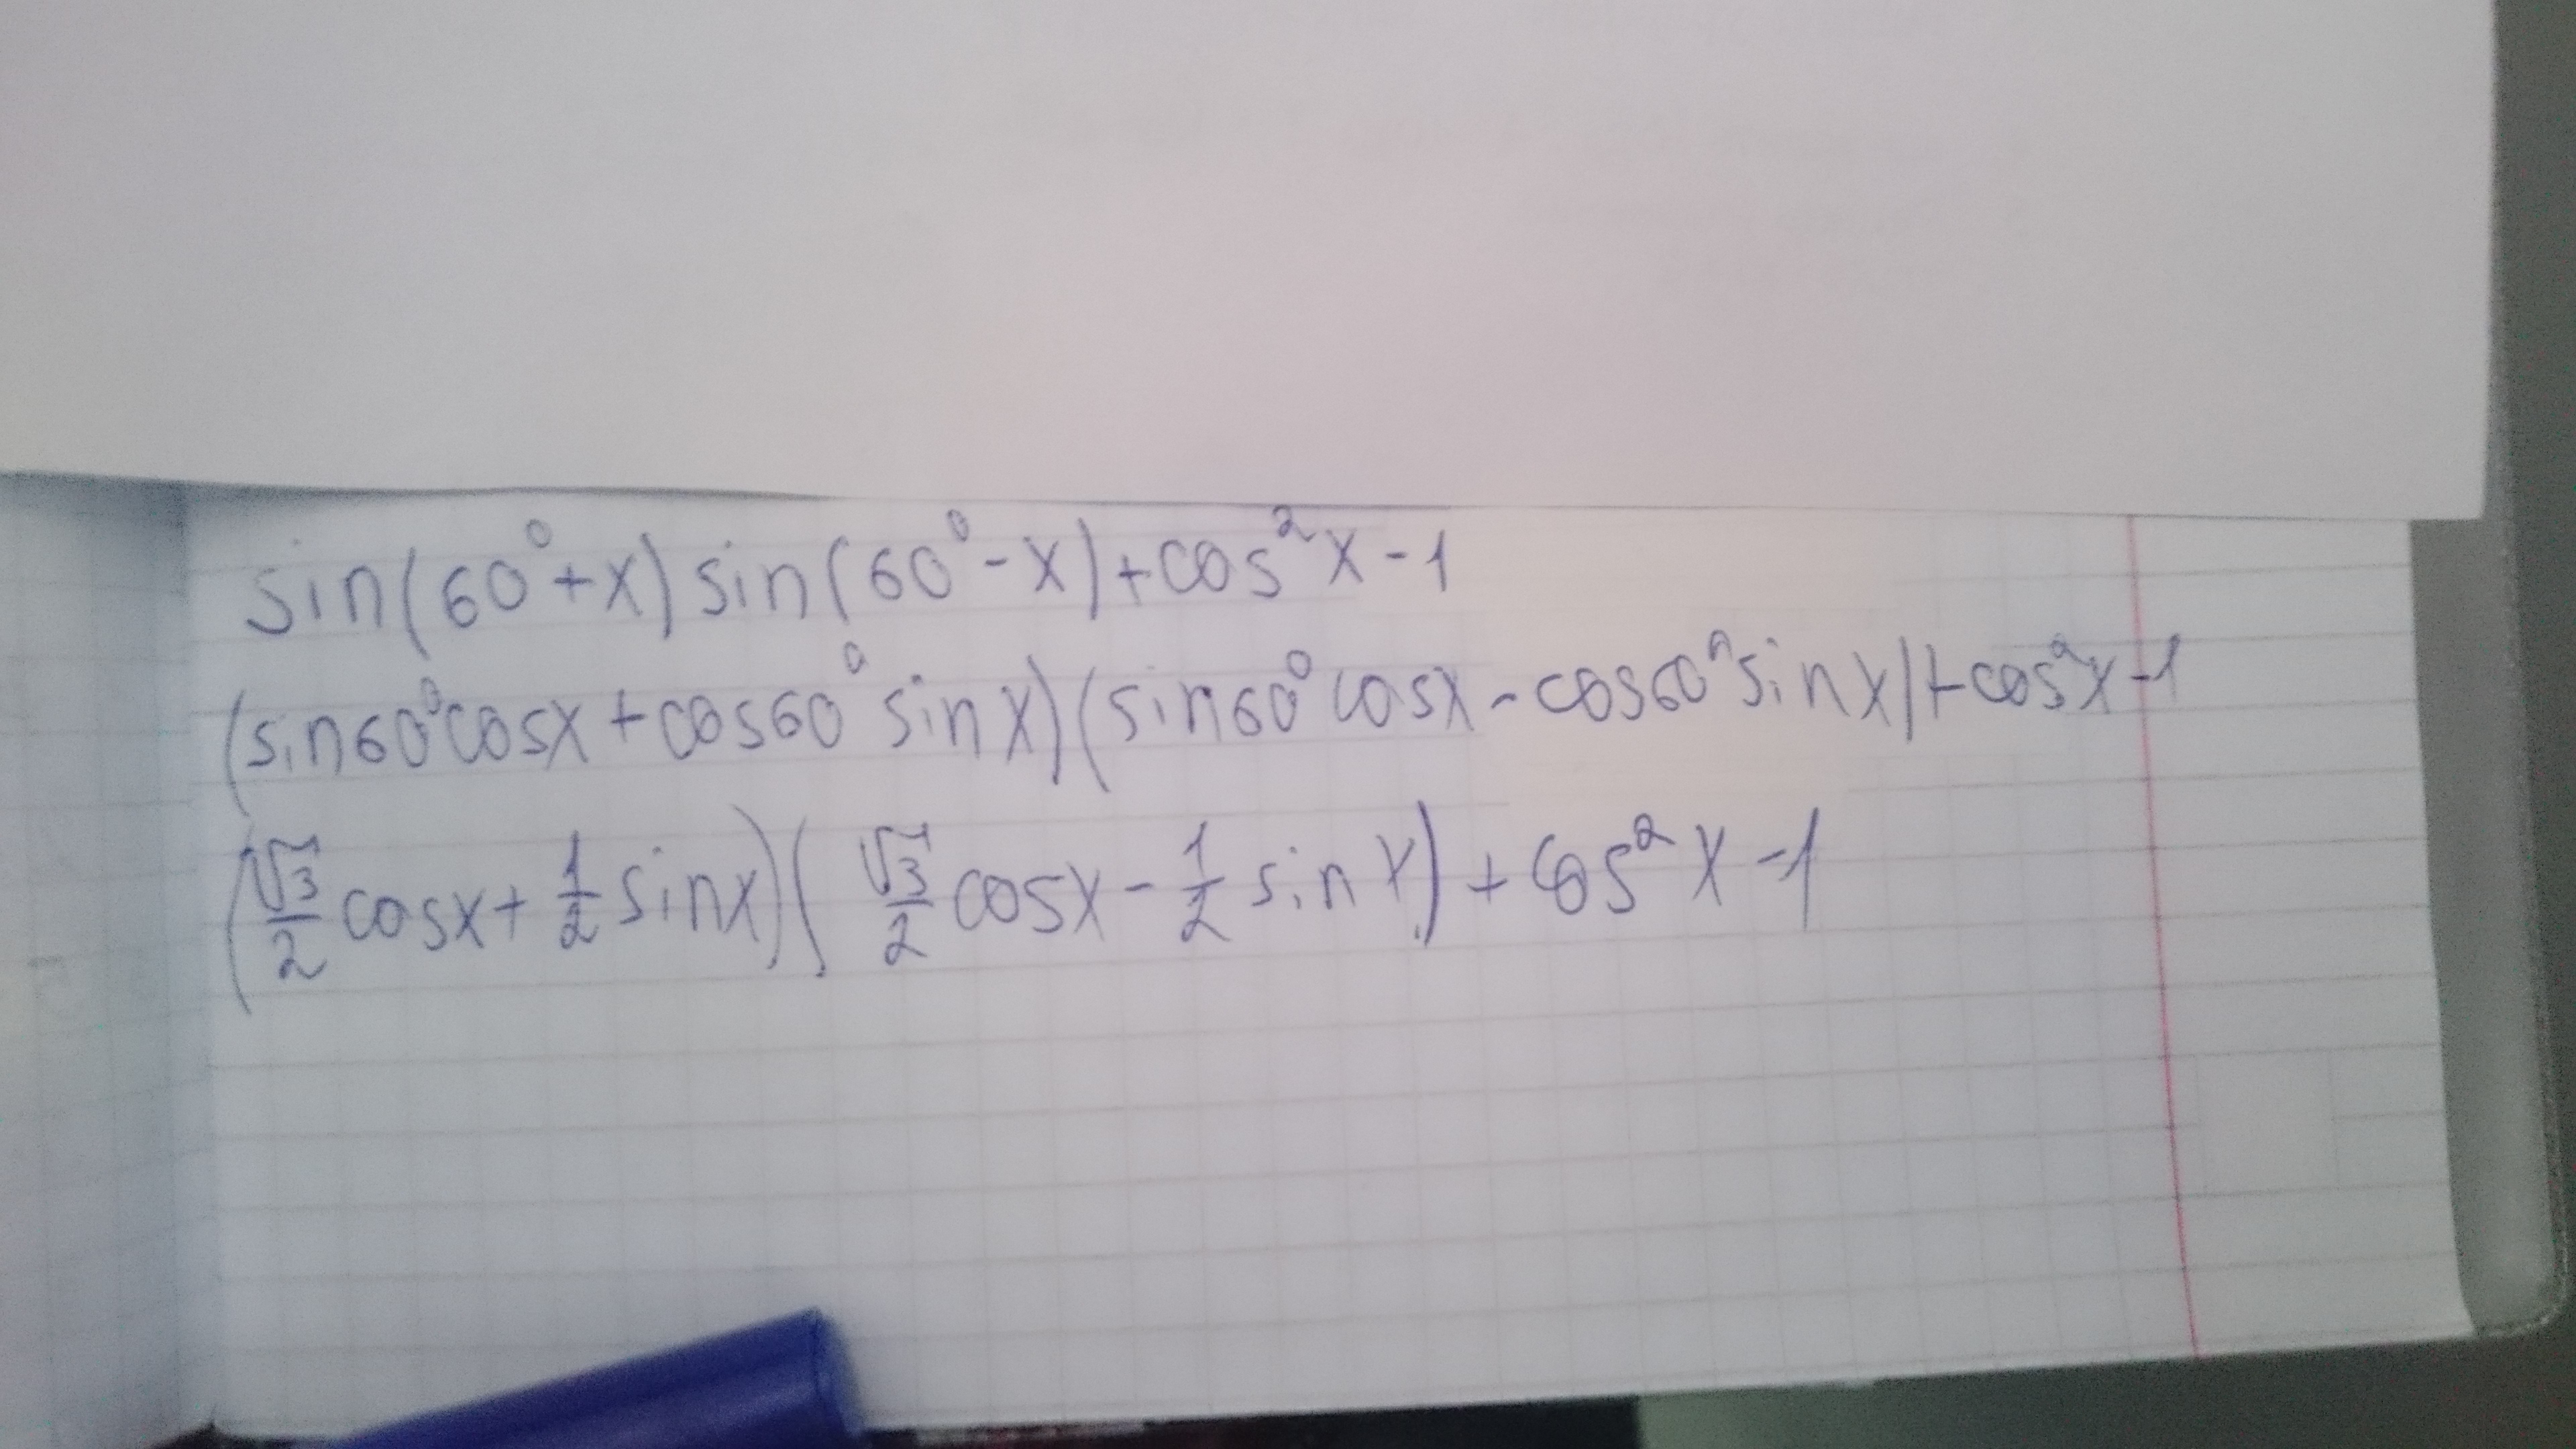 sin(60°+x)sin(60°-x)+cos²x-1
(sin60°cosx+cos60°sinx)(sin60°cosx-cos60°sinx)+cos²x-1
(√3/2 cosx+1/2 sinx)(√3/2 cosx-1/2 sinx)+cos²x-1